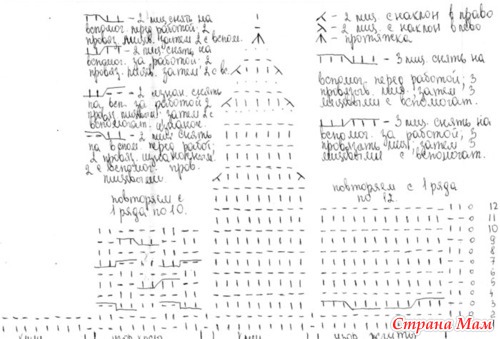 - 2 лиц снять на
вспомог. перед работой; 2
провяз. лицев. затем 2 с вспом.
- 2 лиц. снять на
вспомог. за работой; 2
провяз. лицев. затем 2 с вс.
- 2 изнан. снять
на всп. за работой 2
провяз лицевыми; затем 2 с
вспомогат. изнанок.
- 2 лиц снять
на вспом перед работ;
2 провяз.
2 с вспомог. пров.
лицевыми.
повторяем с
1 ряда по 10.
- 2 лиц. с наклон в право
- 2 лиц. с наклон в лево
- протяжка
- 3 лиц снять на
вспомог. перед работой; 3
провязать лиц. затем 3
лицевыми с вспомогат.
- 3 лиц. снять на
вспомог. за работой; 3
провязать лиц; затем 3
лицевыми с вспомогат.
повторяем с 1 ряда
по 12.
12
11
10
9
8
7
6
5
4
3
2
узор
Страна Мам